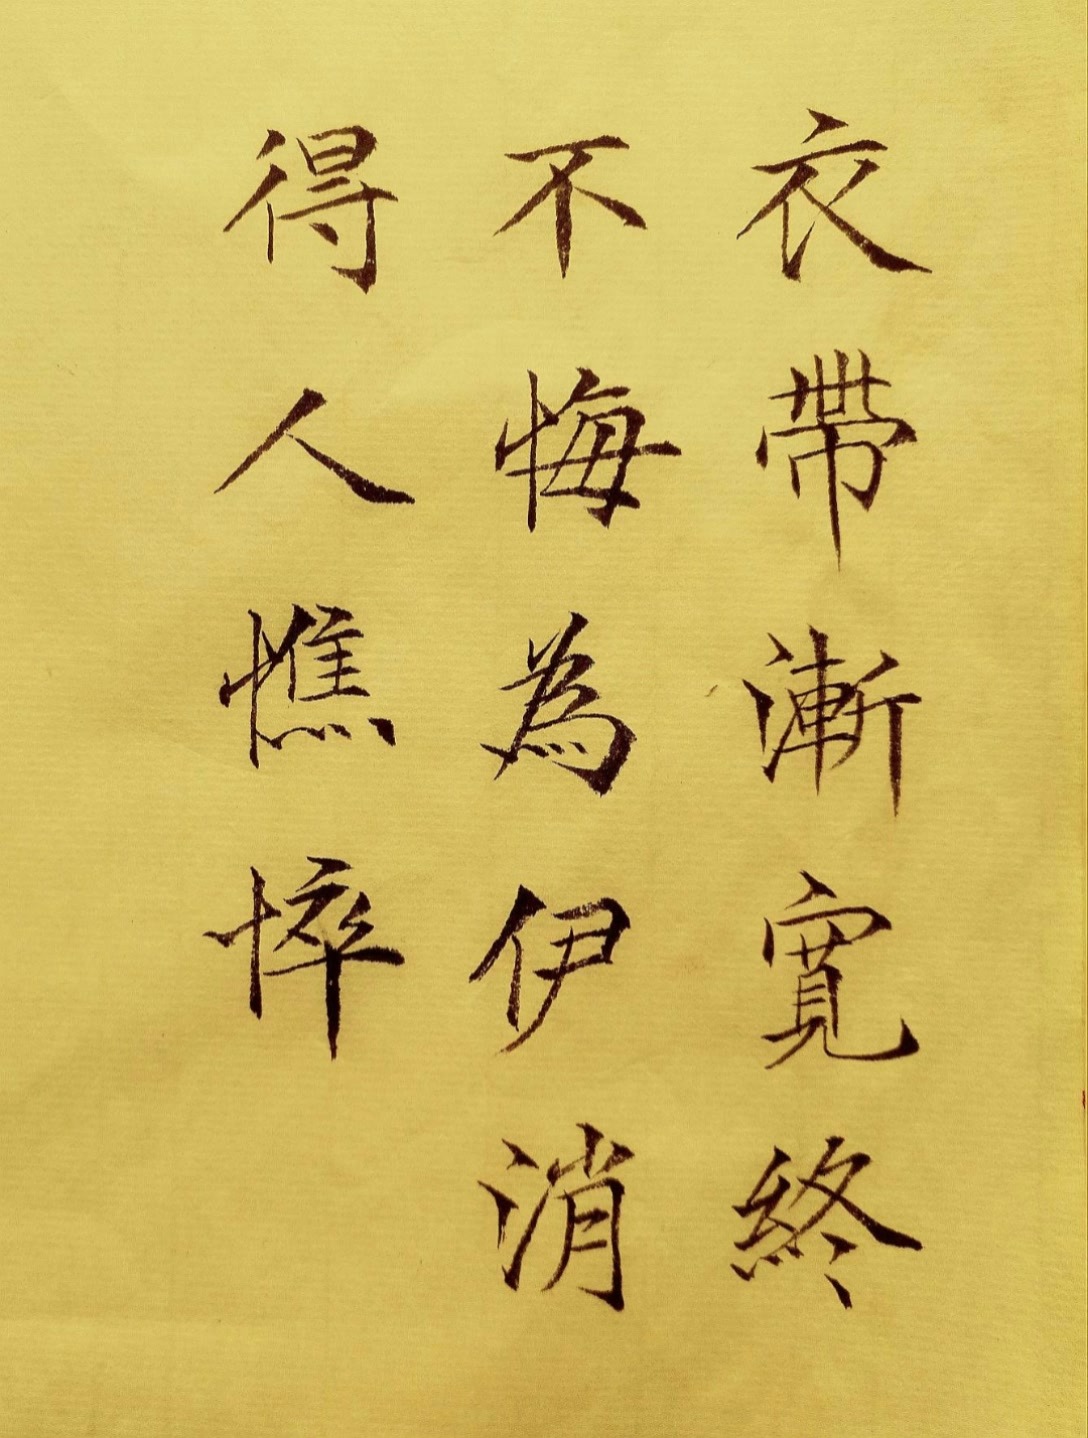 衣帶漸寬終
不悔為伊消
得人憔悴